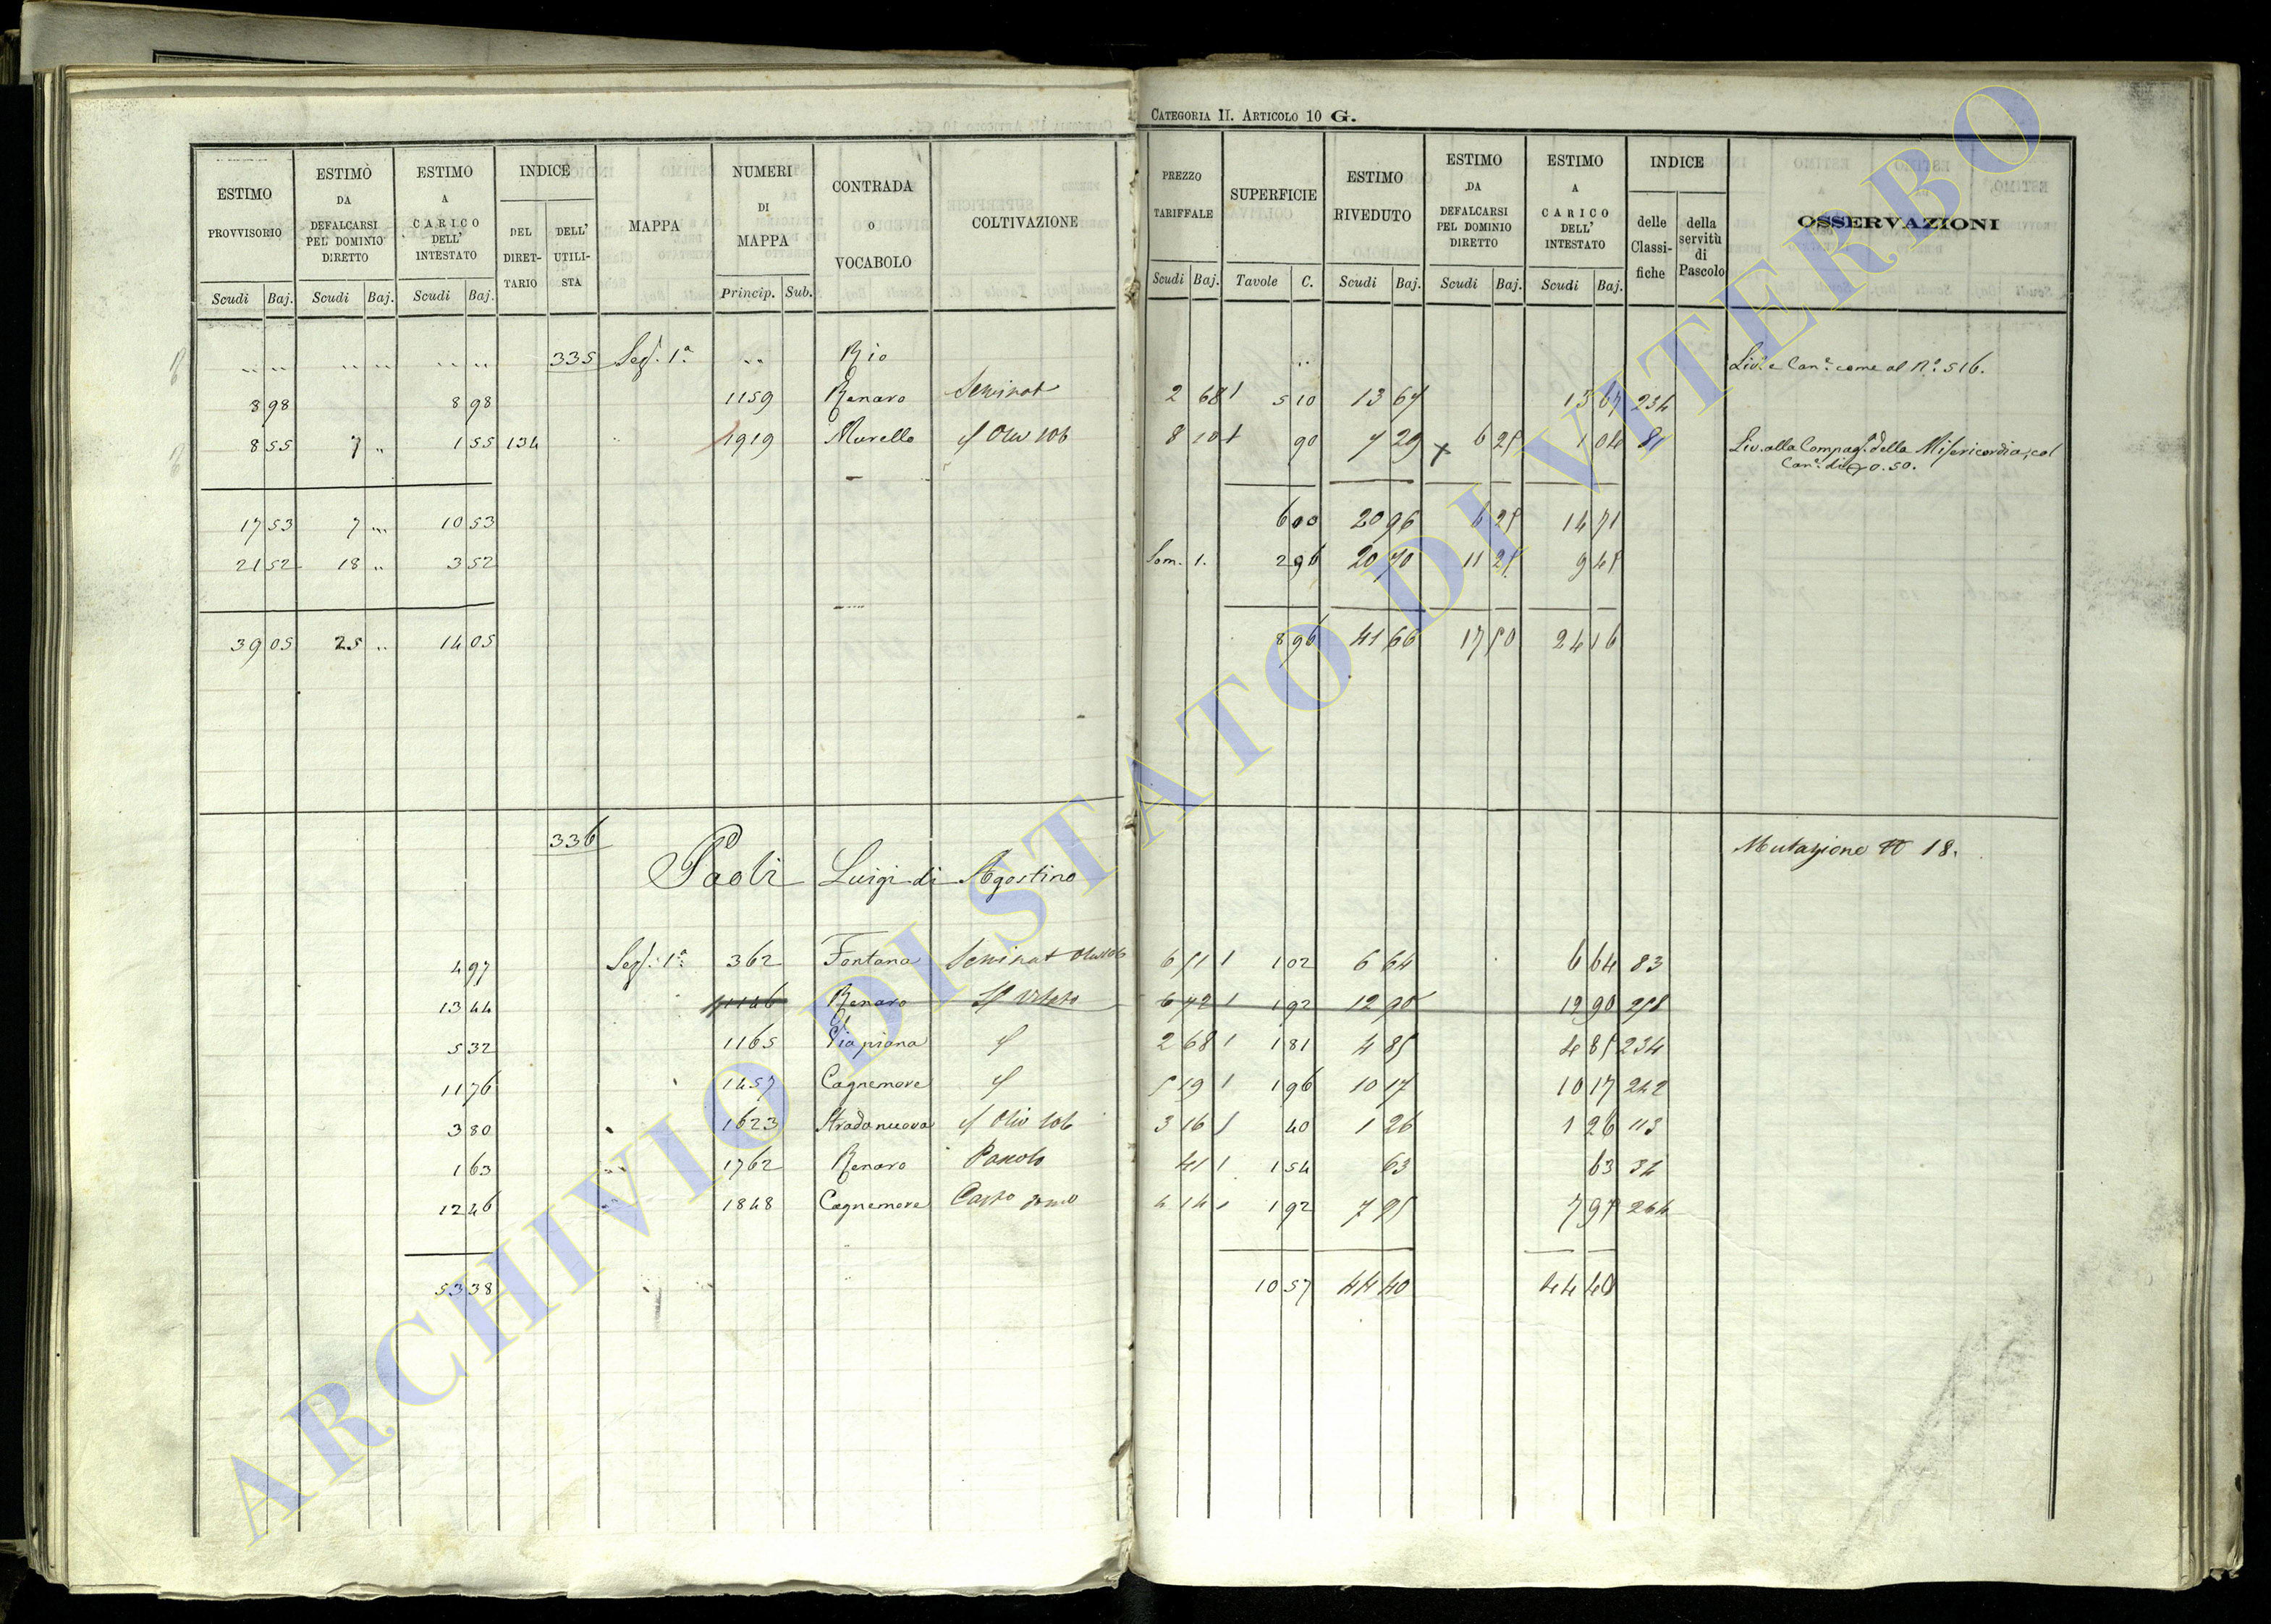 CATEGORIA II. ARTICOLO 10 G.
ESTIMO PROVVISORIO Scudi Baj.
ESTIMO DA DEFALCARSI PEL DOMINIO DIRETTO Scudi Baj.
ESTIMO A CARICO DELL' INTESTATO Scudi Baj.
INDICE DEL DIRET-TARIO DELL' UTILI-STA
MAPPA
NUMERI DI MAPPA Princip. Sub.
CONTRADA o VOCABOLO
COLTIVAZIONE
PREZZO TARIFFALE Scudi Baj.
SUPERFICIE Tavole C.
ESTIMO RIVEDUTO Scudi Baj.
ESTIMO DA DEFALCARSI PEL DOMINIO DIRETTO Scudi Baj.
ESTIMO A CARICO DELL' INTESTATO Scudi Baj.
INDICE delle Classi-fiche della servitù di Pascolo
OSSERVAZIONI
335 Sez. 1ª " " Rio Liv. e Can. come al N. 516.
8 98 8 98 1159 Renaro Seminat 2 68 1 5 10 13 67 13 67 234
8 55 7 " 1 55 134 " 1919 Murello 8 10 1 90 7 29 6 25 1 04 81 Liv. alla Compag. della Misericordia, col
Can. di 0.50.
17 53 7 " 10 53 6 00 20 96 6 25 14 71
21 52 18 " 3 52 Som. 1. 2 96 20 70 11 25 9 45
39 05 25 " 14 05 8 96 41 66 17 50 24 16
336 Mutazione N 18.
Paoli Luigi di Agostino
4 97 Sez. 1ª 362 Fontana Seminat 6 51 1 1 02 6 64 6 64 83
13 44 1146 Renaro Vitato 6 72 1 1 92 12 90 12 90 258
5 32 1165 Piapiana 2 68 1 1 81 4 85 4 85 234
11 76 1457 Cagnemore 5 19 1 1 96 10 17 10 17 242
3 80 1623 Strada nuova 3 16 1 40 1 26 1 26 113
1 63 1762 Renaro Pascolo 41 1 1 54 63 63 34
12 46 1848 Cagnemore 4 14 1 1 92 7 95 7 95 264
53 38 10 57 44 40 44 40
ARCHIVIO DI STATO DI VITERBO